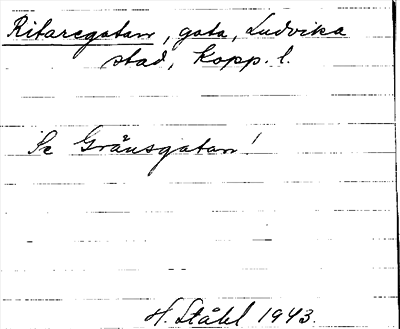 Ritaregatan, gata, Ludvika
stad, Kopp. l.
Se Gränsgatan!
H. Ståhl 1943.